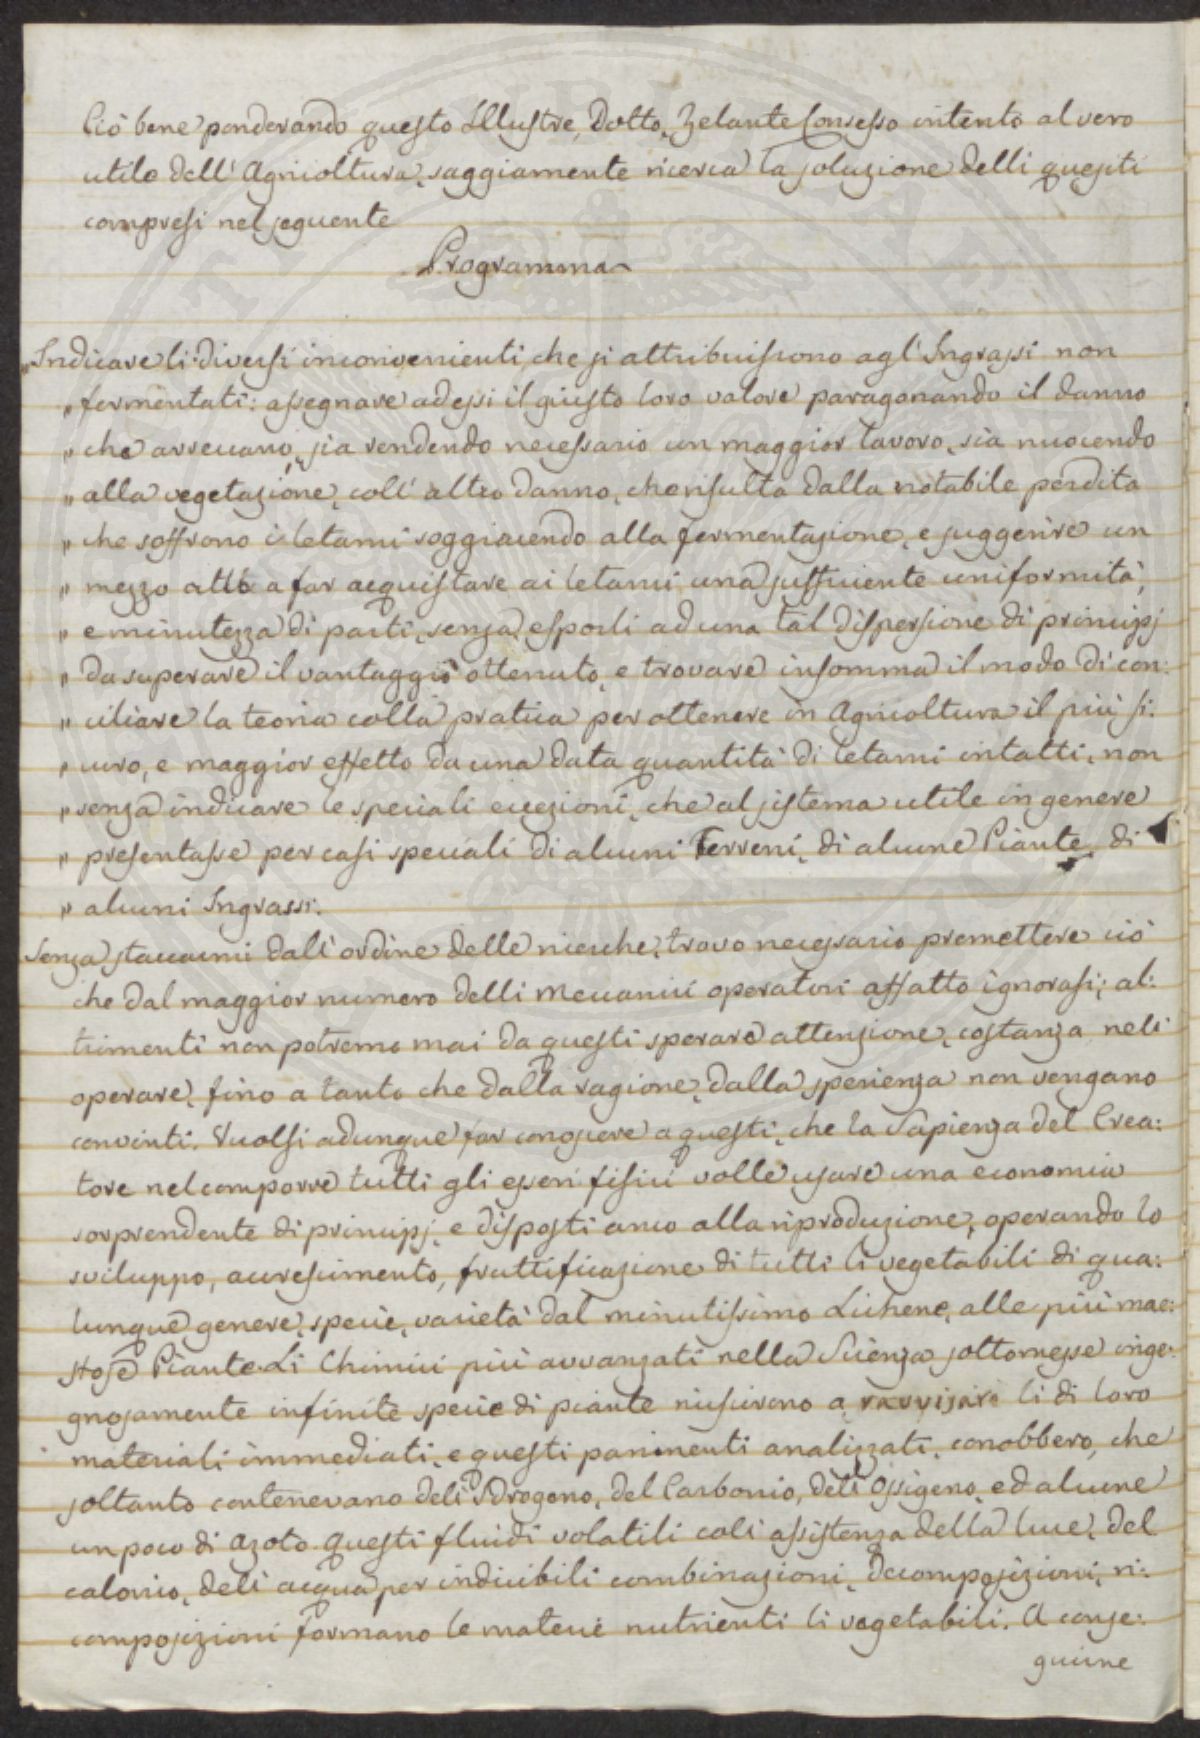 Ciò bene ponderando questo Illustre, Dotto, Zelante Consesso intento al vero
utile dell' Agricoltura, saggiamente ricerca la soluzione delli quesiti
compresi nel seguente
Programma
„Indicare li diversi inconvenienti, che si attribuiscono agl' Ingrassi non
„ fermentati: assegnare ad essi il giusto loro valore paragonando il danno
„ che arrecano, sia rendendo necessario un maggior lavoro, sia nuocendo
„ alla vegetazione, coll' altro danno, che risulta dalla notabile perdita
„ che soffrono i letami soggiacendo alla fermentazione, e suggerire un
„ mezzo atto a far acquistare ai letami una sufficiente uniformità,
„ e minutezza di parti, senza esporli ad una tal dispersione di principj
„ da superare il vantaggio ottenuto, e trovare insomma il modo di con:
„ ciliare la teoria colla pratica per ottenere in Agricoltura il più si:
„ curo, e maggior effetto da una data quantità di letami intatti, non
„ senza indicare le speciali eccezioni, che al sistema utile in genere
„ presentasse per casi speciali di alcuni Terreni, di alcune Piante, di
„ alcuni Ingrassi.
Senza staccarmi dall' ordine delle ricerche, trovo necessario premettere ciò
che dal maggior numero delli Meccanici operatori affatto ignorasi; al:
trimenti non potremo mai da questi sperare attenzione, costanza nell'
operare, fino a tanto che dalla ragione, dalla sperienza non vengano
convinti. Vuolsi adunque far conoscere a questi, che la Sapienza del Crea:
tore nel comporre tutti gli esseri fisici volle usare una economia
sorprendente di principj, e disposti anco alla riproduzione, operando lo
sviluppo, accrescimento, fruttificazione di tutti li vegetabili di qua:
lunque genere, specie, varietà dal minutissimo Lichene, alle più mae:
stose Piante. Li Chimici più avvanzati nella Scienza sottomesse inge:
gnosamente infinite specie di piante riuscirono a ravvisare li di loro
materiali immediati, e questi parimenti analizzati, conobbero, che
soltanto contenevano dell' Idrogeno, del Carbonio, dell' Ossigeno, ed alcune
un poco di Azoto. Questi fluidi volatili coll' assistenza della luce, del
calorico, dell' acqua per indicibili combinazioni, decomposizioni, ri:
composizioni formano le materie nutrienti li vegetabili. A conse:
guirne